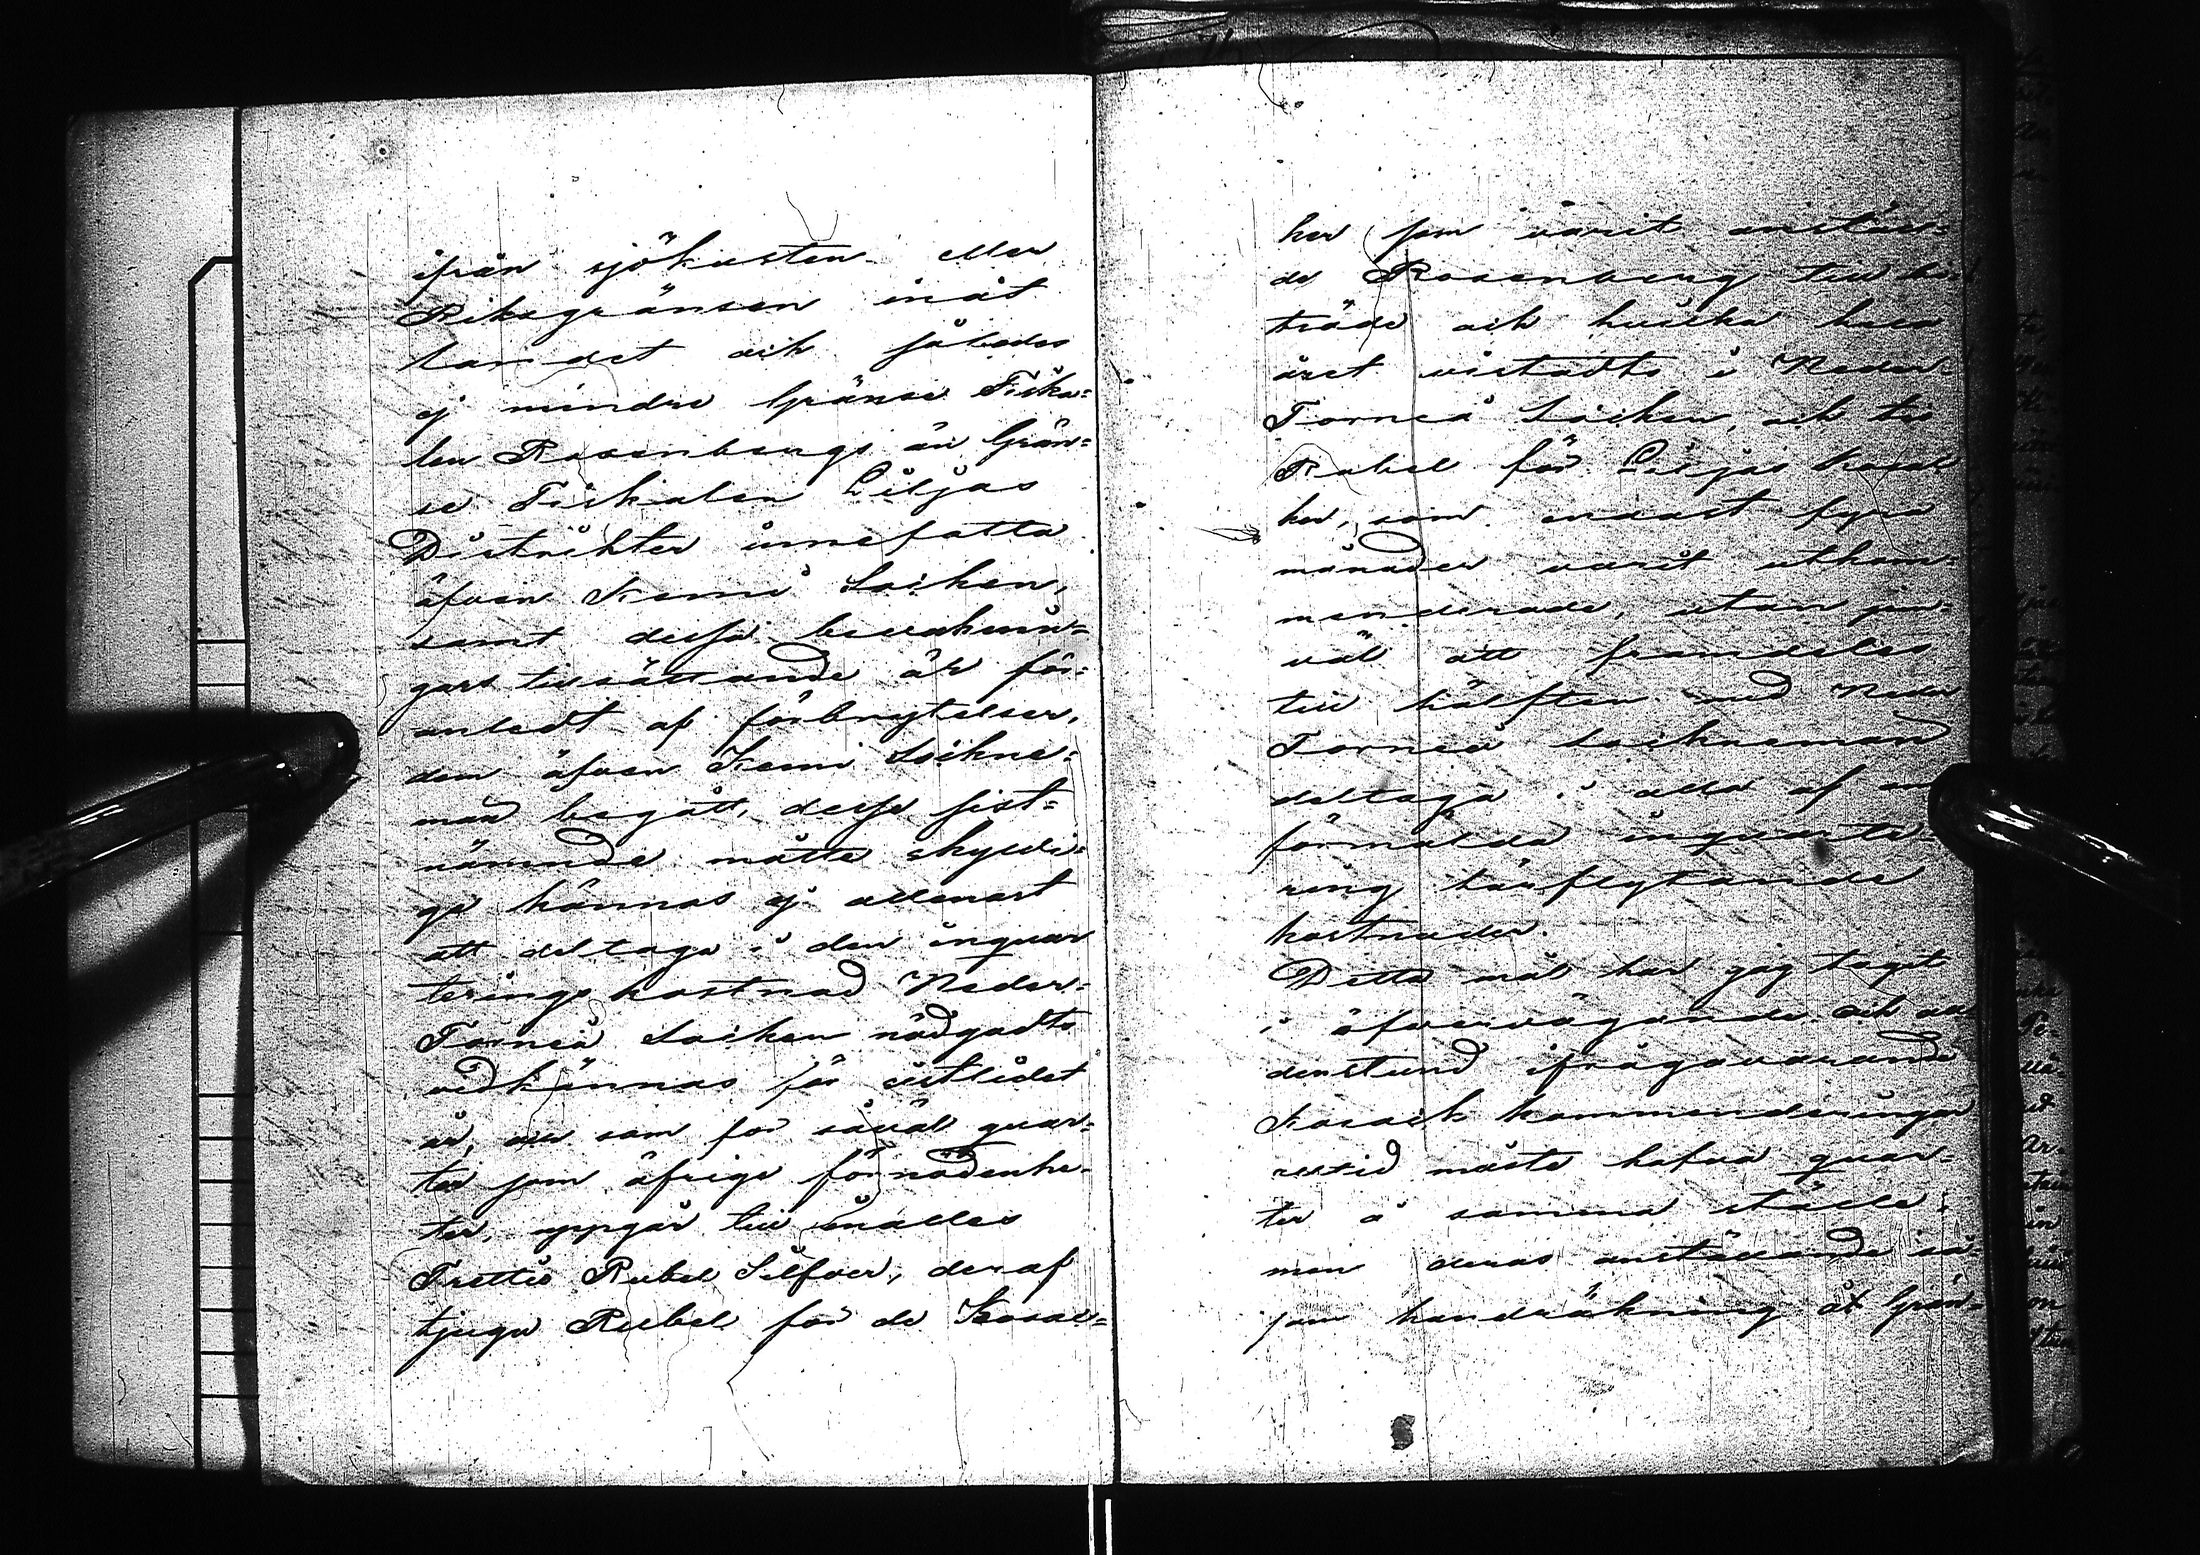 ifrån sjökusten eller
Riksgränsen inåt
landet och således
ej mindre Gränse Fiska=
len Rosenbergs än Grän=
se Fiskalen Liljas
Distrikter innefatta
äfven Kemi Socken,
samt dessa bevaknin=
gars tillsättande är för=
anledt af förbrytelser,
dem äfven Kemi Sockne=
män begått, desse sist=
nämnde måtte skyldi=
ge kännas ej allenast
att deltaga i den inquar
terings kostnad Neder=
Torneå Socken nödgadts
vidkännas för sistlidet
år, som för såväl quar=
ter som öfrige förnödenhe=
ter, uppgår till
Trettio Rubel Silfver, deraf
tjugu Rubel för de Kosac=
ker som varit anstälde
de Rosenberg till bi
träde och hvilka hela
året vistadts i Neder=
Torneå Socken, och tio
Rubel för Liljas Kosac
ker, som endast fyra
månader varit utkom=
menderade, utan jem=
väl att framdeles
till hälften med Neder
Torneå Socknemän
deltaga i alla af
förmälda inquarte=
ring härflytande
kostnader.
Detta mål har jag tagit
i öfvervägande och
denstund ifrågavarande
Kosack kommenderingar
alltid måste hafva quar=
ter å samma ställe;
men deras anställande så=
som handräkning åt Grän=